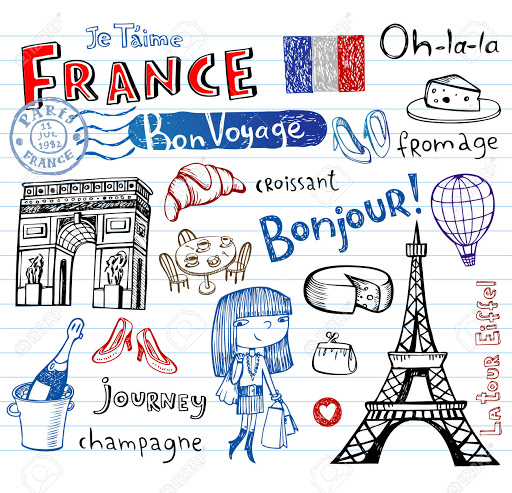 Je T'aime
FRANCE
Oh-la-la
PARIS
11
JUL
1982
FRANCE
Bon Voyage
fromage
croissant
Bonjour!
La tour Eiffel
journey
champagne